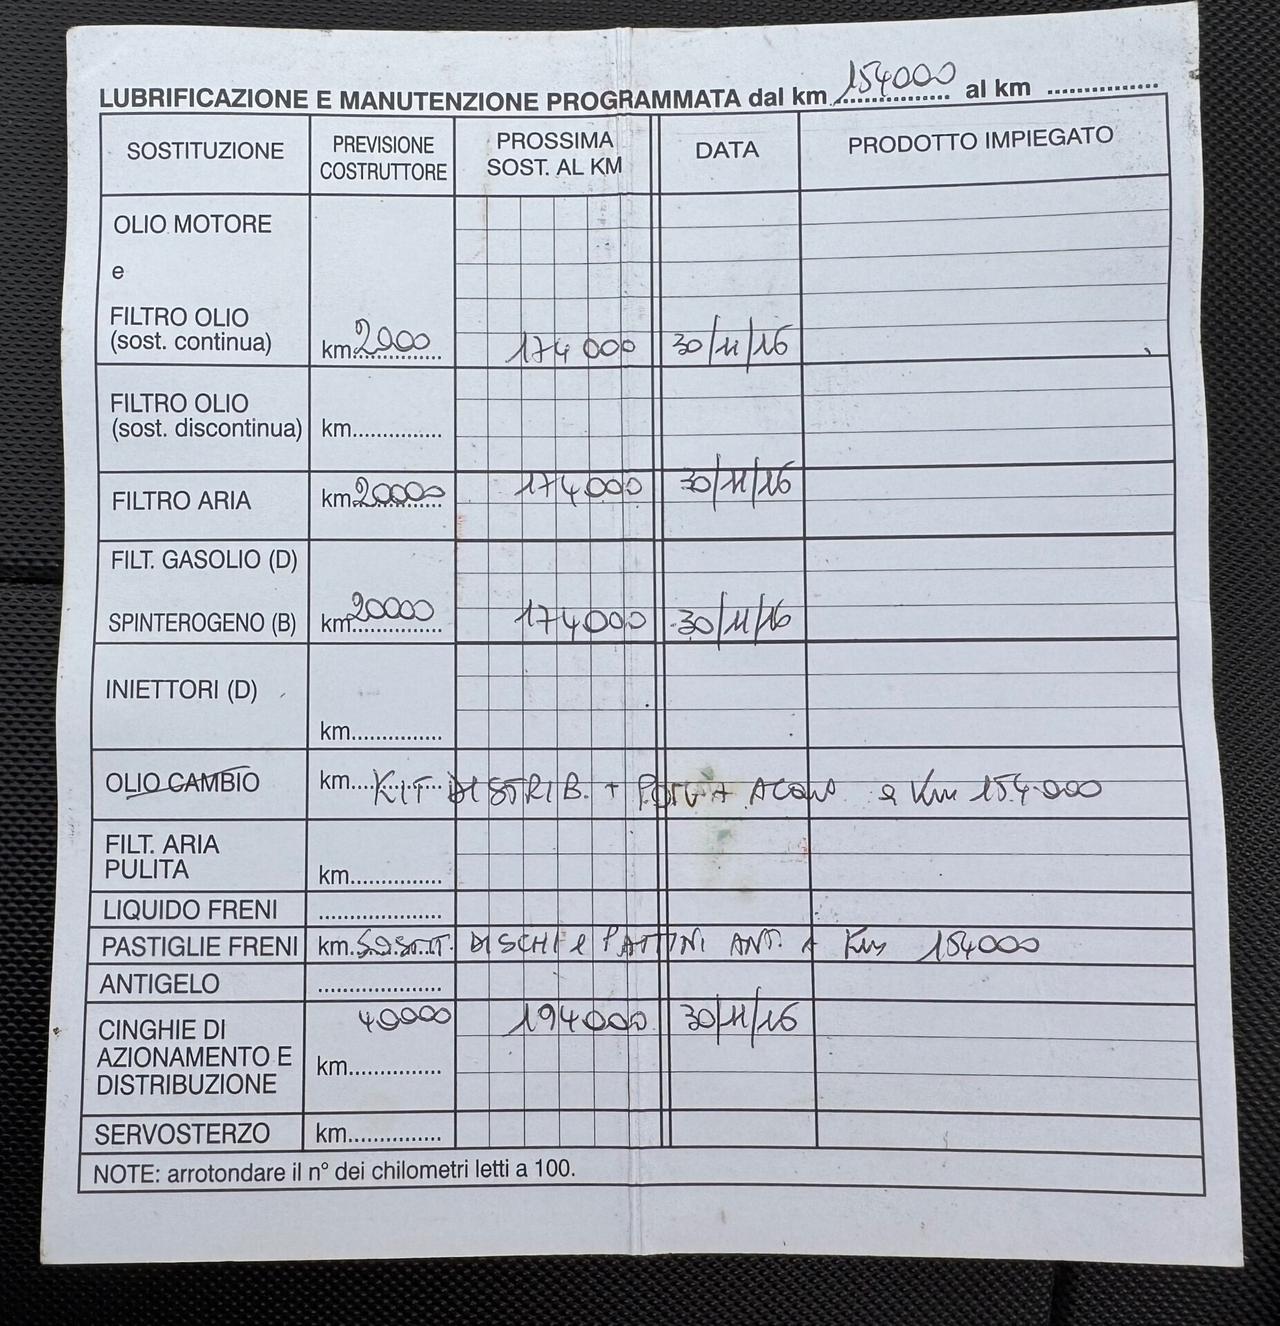 LUBRIFICAZIONE E MANUTENZIONE PROGRAMMATA dal km 154000 al km ................
SOSTITUZIONE PREVISIONE COSTRUTTORE PROSSIMA SOST. AL KM DATA PRODOTTO IMPIEGATO
OLIO MOTORE
e
FILTRO OLIO
(sost. continua) km 2000 174000 30/11/16
FILTRO OLIO
(sost. discontinua) km..............
FILTRO ARIA km 20000 174000 30/11/16
FILT. GASOLIO (D)
SPINTEROGENO (B) km 20000 174000 30/11/16
INIETTORI (D)
km..............
OLIO CAMBIO km.... KIT DISTRIB. + POMPA ACQUA a Km 154.000
FILT. ARIA
PULITA km..............
LIQUIDO FRENI ...................
PASTIGLIE FRENI km. SOSTIT. DISCHI e PATTINI ANT. A Km 154000
ANTIGELO ...................
CINGHIE DI 40000 194000 30/11/16
AZIONAMENTO E km..............
DISTRIBUZIONE
SERVOSTERZO km..............
NOTE: arrotondare il n° dei chilometri letti a 100.